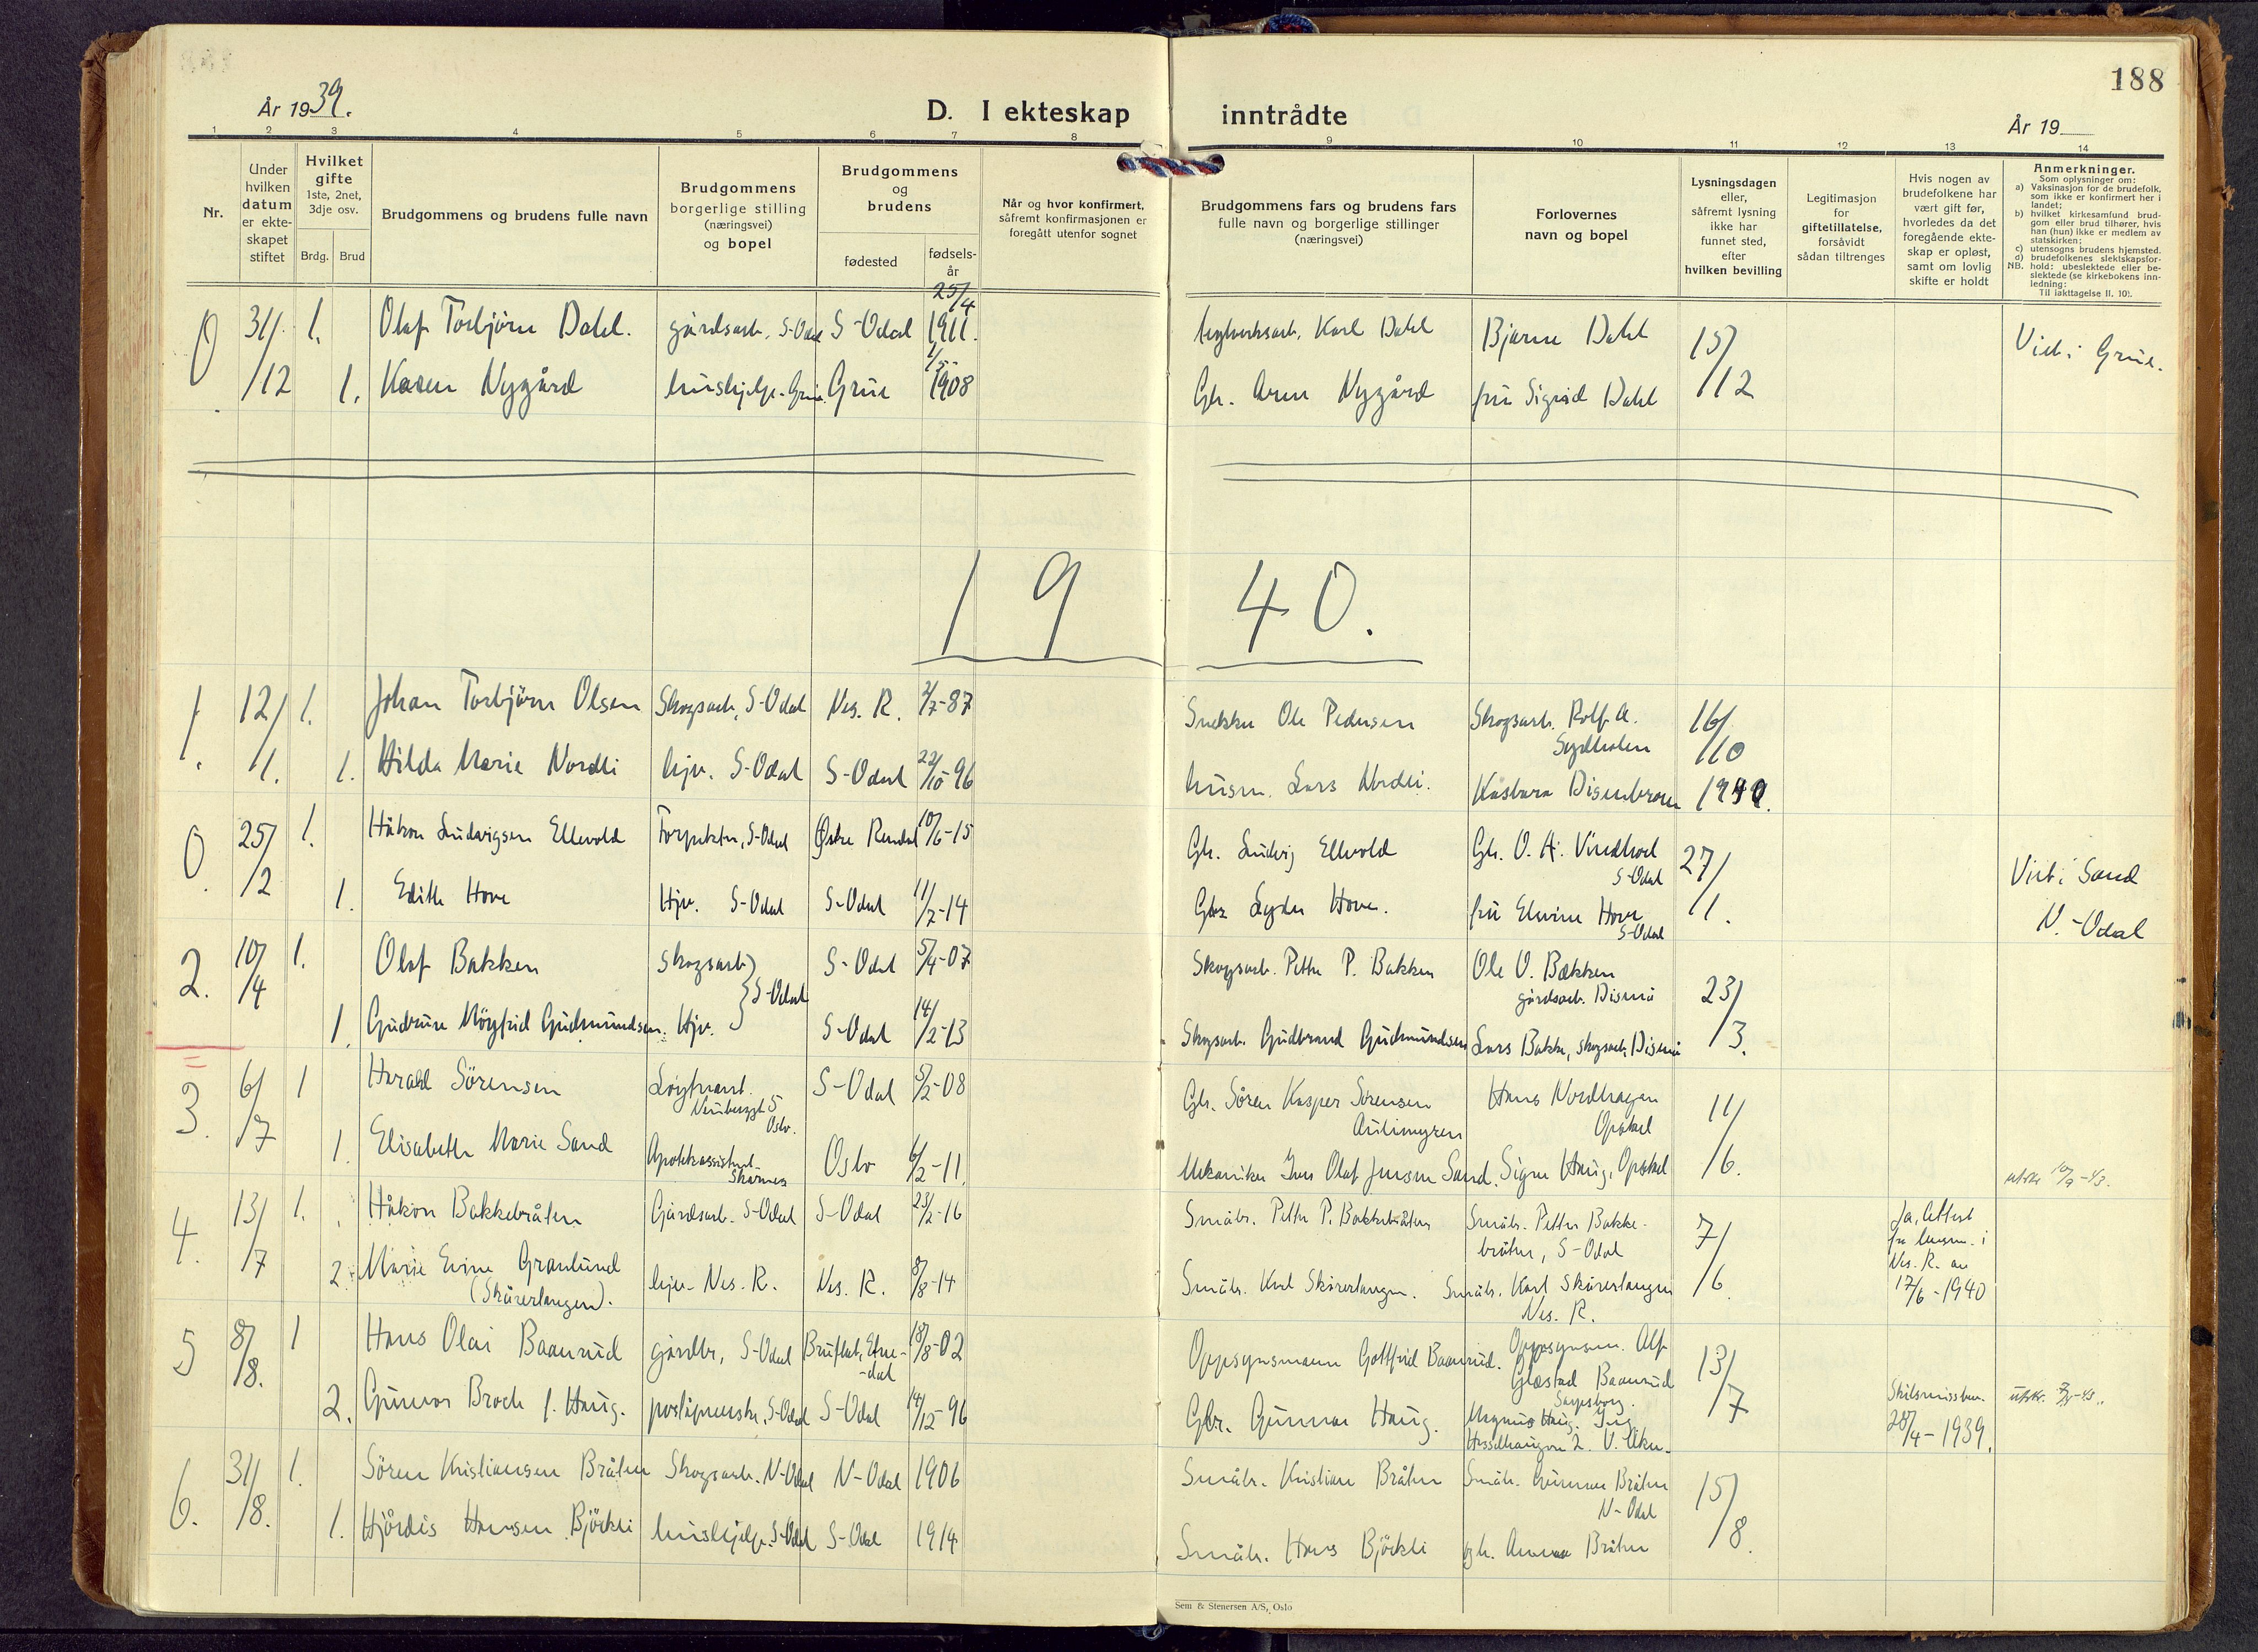 188
År 1939.
D. I ekteskap inntrådte
År 19
1 2 3 4 5 6 7 8 9 10 11 12 13 14
Nr.
Under
hvilken
datum
er ekte-
skapet
stiftet
Hvilket
gifte
1ste, 2net,
3dje osv.
Brdg. Brud
Brudgommens og brudens fulle navn
Brudgommens
borgerlige stilling
(næringsvei)
og bopel
Brudgommens
og
brudens
fødested
fødsels-
år
Når og hvor konfirmert,
såfremt konfirmasjonen er
foregått utenfor sognet
Brudgommens fars og brudens fars
fulle navn og borgerlige stillinger
(næringsvei)
Forlovernes
navn og bopel
Lysningsdagen
eller,
såfremt lysning
ikke har
funnet sted,
efter
hvilken bevilling
Legitimasjon
for
giftetillatelse,
forsåvidt
sådan tiltrenges
Hvis nogen av
brudefolkene har
vært gift før,
hvorledes da det
foregående ekte-
skap er opløst,
samt om lovlig
skifte er holdt
Anmerkninger.
Som oplysninger om:
a) Vaksinasjon for de brudefolk,
som ikke er konfirmert her i
landet;
b) hvilket kirkesamfund brud-
gom eller brud tilhører, hvis
han (hun) ikke er medlem av
statskirken;
c) utensogns brudens hjemsted.
d) brudefolkenes slektskapsfor-
NB. hold: ubeslektede eller be-
slektede (se kirkebokens inn-
ledning:
Til iakttagelse II. 10).
0 31/12 1. Olaf Torbjörn Dahl. gårdsarb. S-Odal S-Odal 25/4 1911. Karl Dahl Bjarne Dahl 15/12 Viet i Grue.
1. Karen Nygård hushjelp. Grue. Grue 1908 Gbr. Arne Nygård fru Sigrid Dahl
1940.
1. 12/1. 1. Johan Torbjörn Olsen Skogsarb, S-Odal Nes. R. 2/7-87 Snekker Ole Pedersen Skogsarb. Rolf A. 16/10
1. Hilda Marie Nordli hjv. S-Odal S-Odal 22/10-96 husm. Lars Nordli.
0. 25/2 1. Håkon Ludvigsen Ellevold S-Odal Østre Rendal 10/6-15 Gbr. Ludvig Ellevold Gbr. O. H. 27/1.
S-Odal
Viet i Sand
N.-Odal
1. Edith Hove Hjv. S-Odal S-Odal 11/7-14 Gbr. Hove. fru Elvine Hove
S-Odal
2. 10/4 1. Olaf Bakken skogsarb S-Odal S-Odal 5/4-07 Skogsarb. Petter P. Bakken Ole O. Bakken
gårdsarb. Disenå
23/3.
1. Gudrun Möyfrid Gudmundsen. Hjv. S-Odal 14/2-13 Skogsarb. Gudbrand Gudmundsen Lars Bakke, skogsarb. Disenå
3. 6/7 1 Harald Sörensen S-Odal 5/2-08 Gbr. Sören Kasper Sörensen Hans Nordhagen
Oslo. Opakel
11/6.
1. Elisabeth Marie Sand Apotekassistent
Skarnes
Oslo 6/2-11. Mekaniker Jens Olaf Jensen Sand. Signe Haug, Opakel
4. 13/7 1. Håkon Bakkebråten Gårdsarb. S-Odal S-Odal 23/2-16 Småbr. Petter P. Bakkebråten Småbr. Petter Bakke-
bråten, S-Odal
7/6
Ja, Attest
i
Nes. R. av
17/6-1940
2. Marie Evine Granlund
(Skårerlangen).
hjv. Nes. R. Nes. R. 8/8-14 Småbr. Karl Skårerlangen. Småbr. Karl Skårerlangen
Nes. R.
5 8/8. 1 Hans Olai Baanrud gårdbr, S-Odal Bruflat, Etne-
-dal
18/8-02 Oppsynsmann Gottfrid Baanrud. Oppsynsm. Alf
Baanrud
Sarpsborg.
13/7
2. Gunvor Broch f. Haug. S-Odal S-Odal 14/12-96 Gbr. Gunnar Haug. Magnus Haug.
28/4-1939.
6. 31/8. 1. Sören Kristiansen Bråten Skogsarb. N-Odal N-Odal 1906 Småbr. Kristian Bråten Småbr. Gunnar Bråten
N-Odal
15/8.
1. Hjördis Hansen Björkli hushjelp. S-Odal S-Odal 1914 Småbr. Hans Björkli Bråten
Sem & Stenersen A/S, Oslo